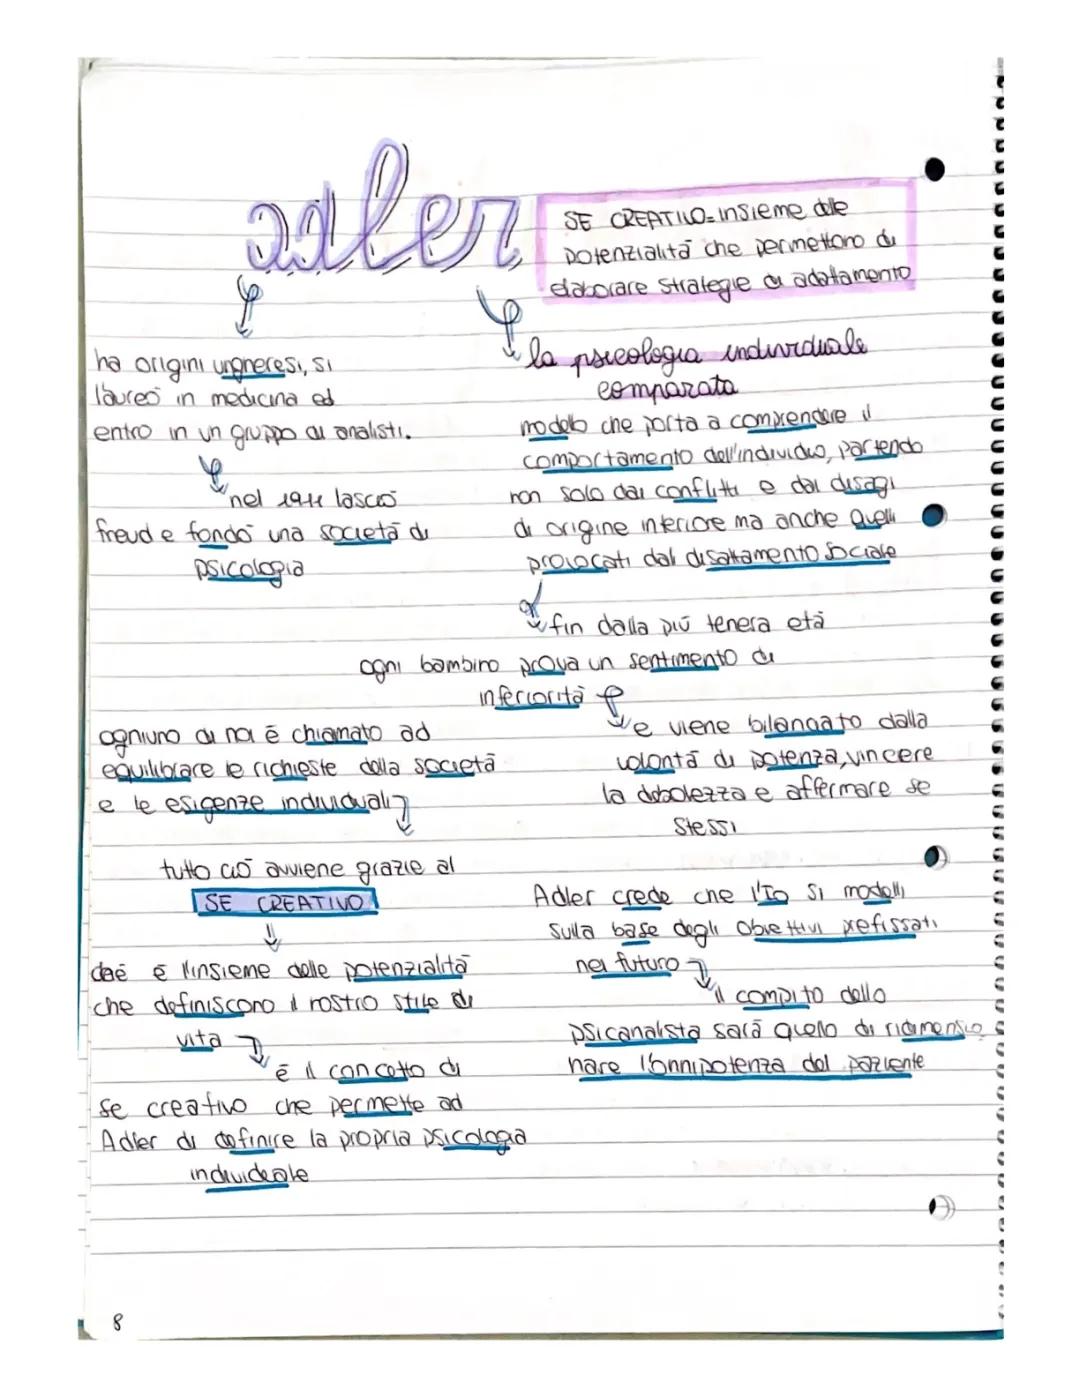 adler
SE CREATIVO= insieme delle
potenzialità che permettono di
elaborare strategie di adattamento
ha origini ungheresi, si
laureò in medicina ed
entro in un gruppo di analisti.
nel 1911 lasciò
freud e fondò una società di
psicologia
la psicologia individuale
comparata
modello che porta a comprendere il
comportamento dell'individuo, partendo
non solo dai conflitti e dai disagi
di origine interiore ma anche quelli
provocati dal disattamento sociale
fin dalla più tenera età
ogni bambino prova un sentimento di
inferiorità
e viene bilanciato dalla
volontà di potenza, vincere
la debolezza e affermare se
stessi
ogniuno di noi è chiamato ad
equilibrare le richieste della società
e le esigenze individuali
tutto ciò avviene grazie al
SE CREATIVO
cioè è l'insieme delle potenzialità
che definiscono il nostro stile di
vita
è il concetto di
se creativo che permette ad
Adler di definire la propria psicologia
individuale
Adler crede che l'Io si modelli
sulla base degli obiettivi prefissati
nel futuro
il compito dello
psicanalista sarà quello di ridimensio
nare l'onnipotenza del paziente
8